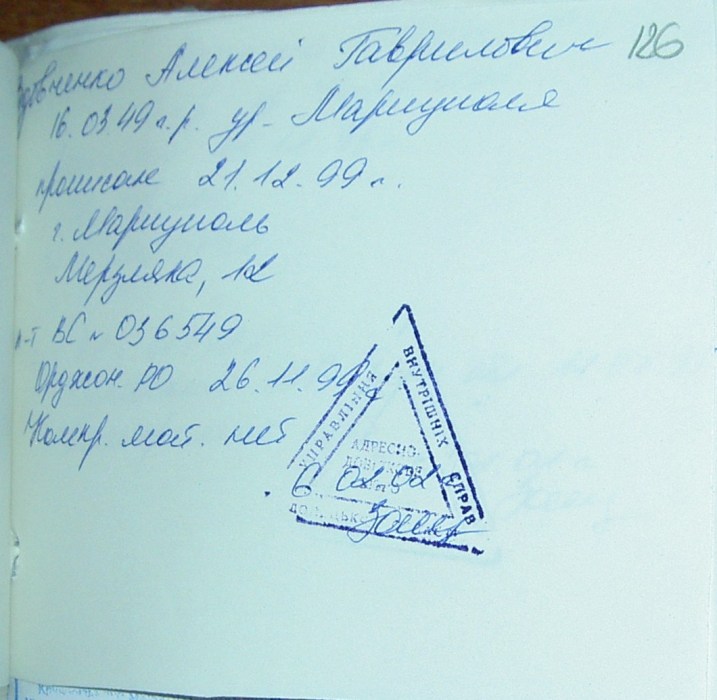 Алексей Гаврилович 126
16.03.49 г.р. ур-. Мариуполя
прописан 21.12.99 г.
г. Мариуполь
Мерзляка, 12
п-т ВС № 036549
Орджон. РО 26.11.99
Компр. мат. нет
УПРАВЛІННЯ
ВНУТРІШНІХ СПРАВ
АДРЕСНО-
ДОВІДКОВЕ
6. 02.02